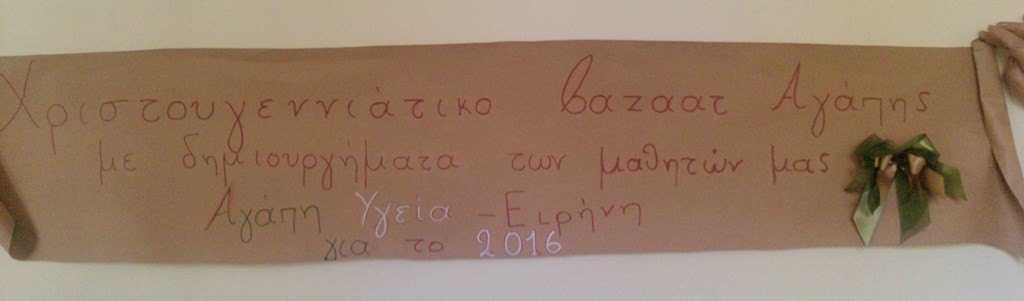 Χριστουγεννιάτικο Bazaar Αγάπης
με δημιουργήματα των μαθητών μας
Αγάπη Υγεία - Ειρήνη
για το 2016